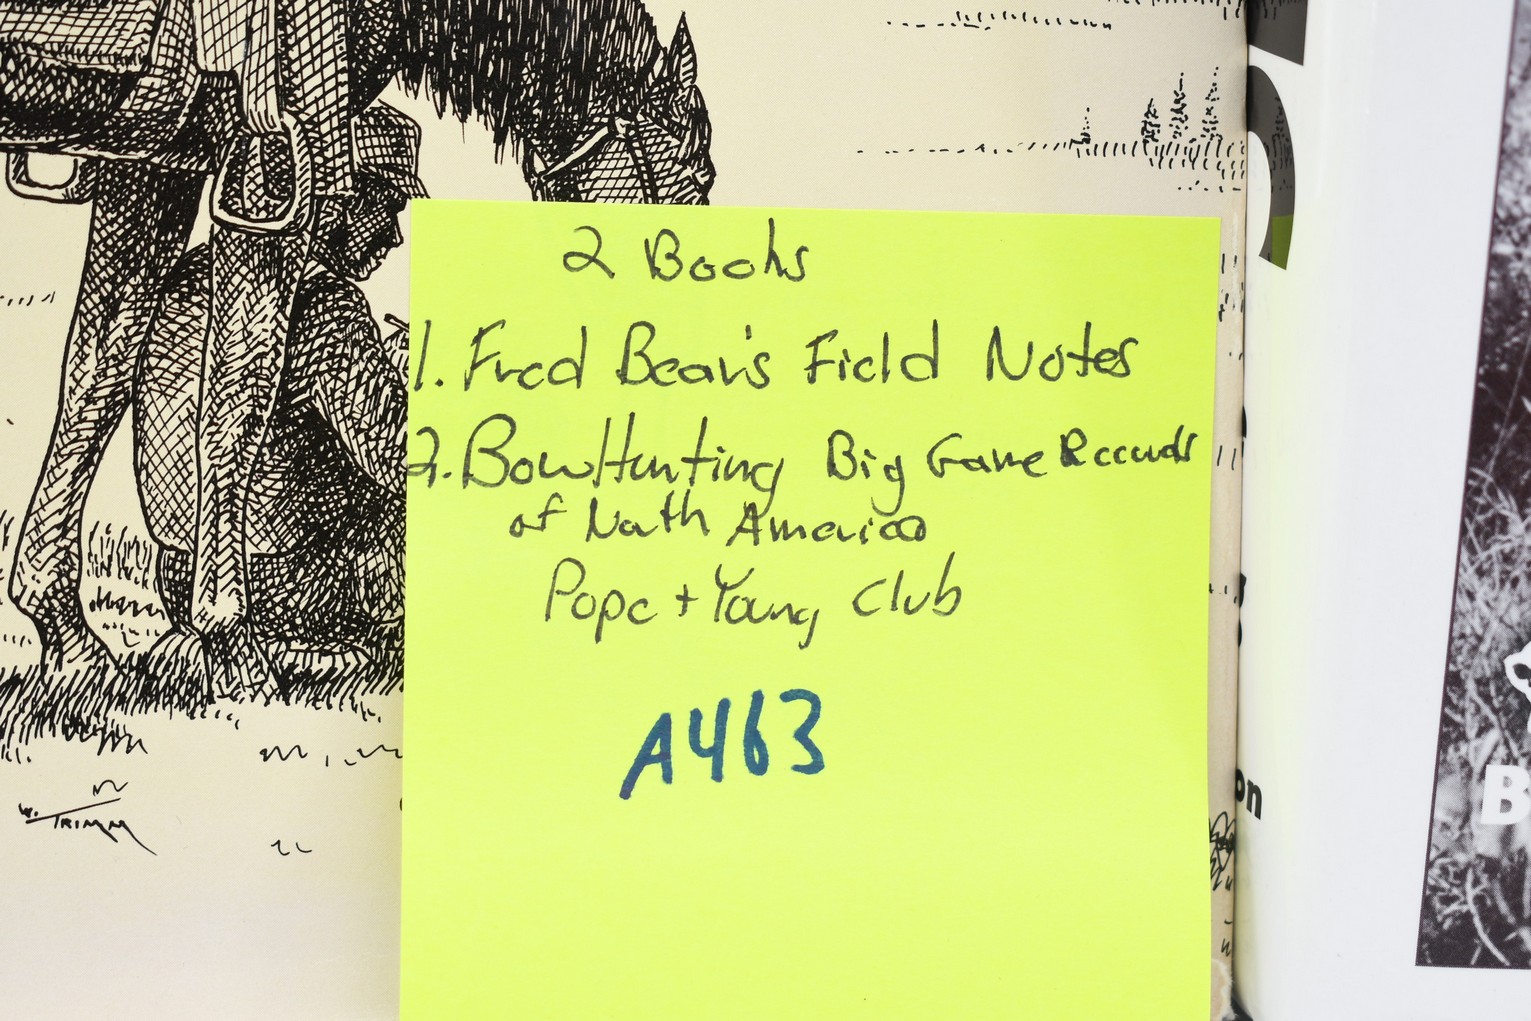 2 Books
1. Fred Bear's Field Notes
2. BowHunting Big Game Records
of North America
Pope + Young Club
A463
W. TRIMM
on
B